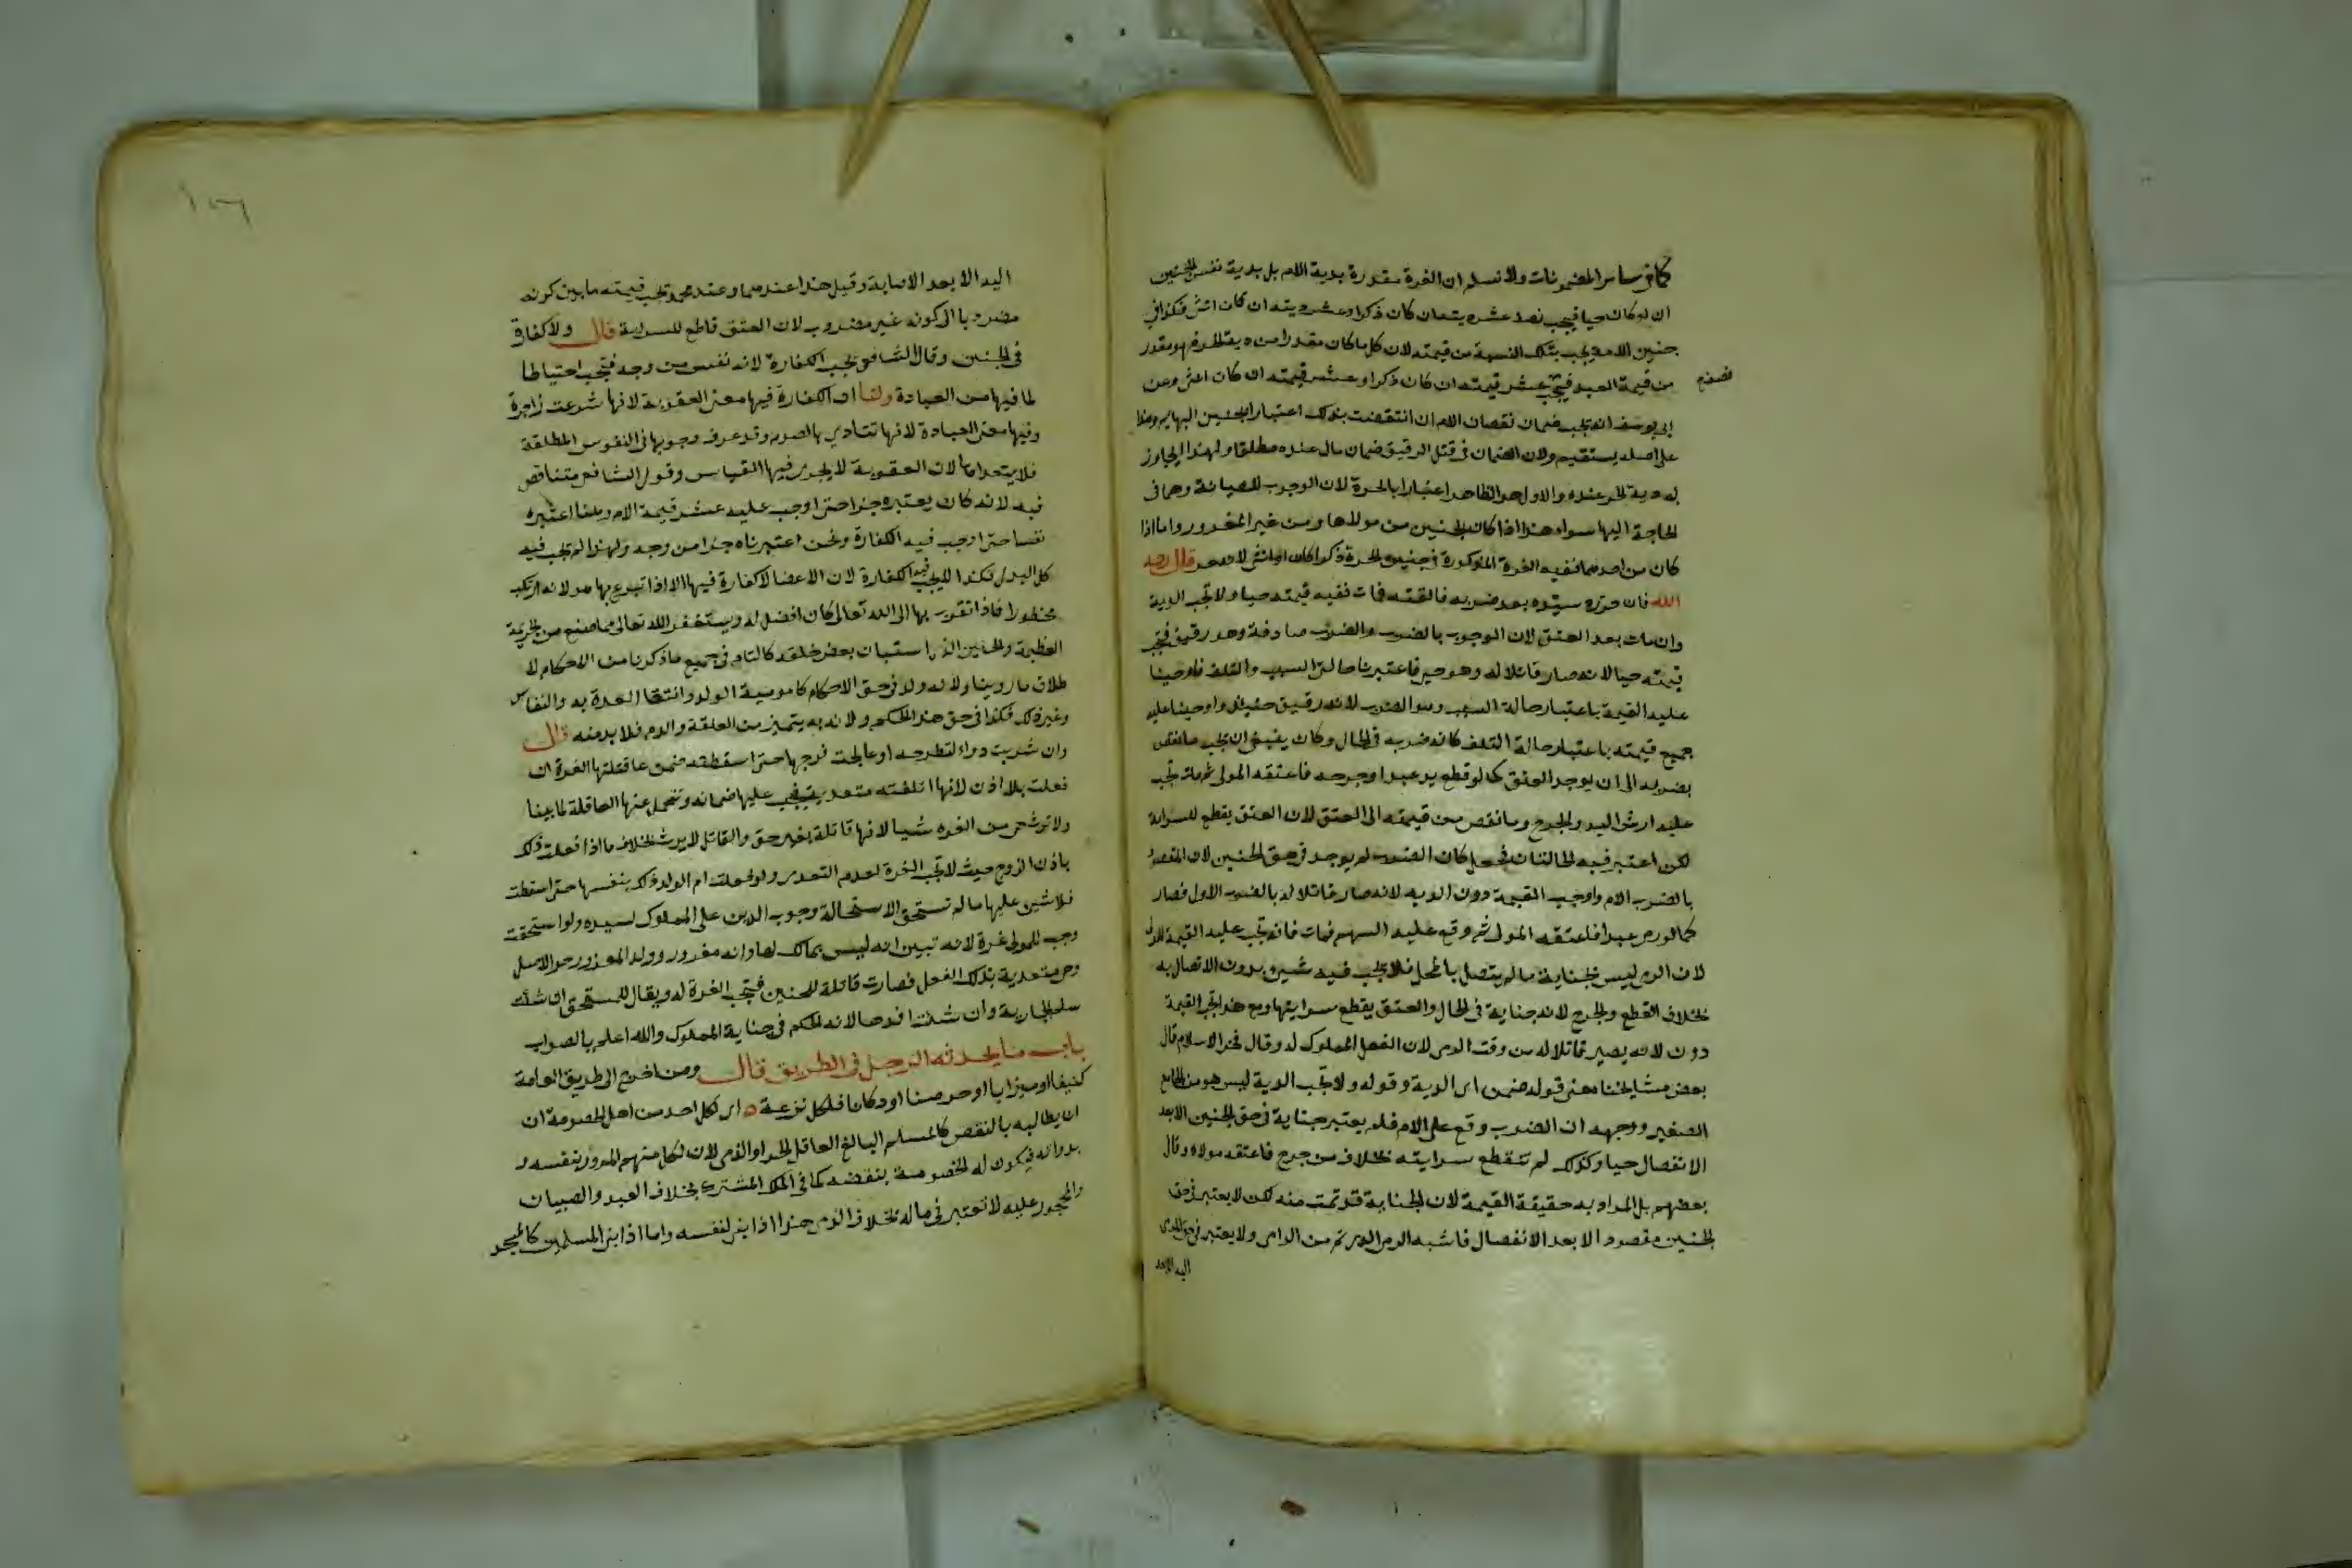 كما في سائر المضمونات ولا نسلم ان الغرة مقدرة بدية الام بل بدية نفس الجنين
ان لو كان حيا فيجب نصف عشر ديته ان كان ذكرا وعشر ديته ان كان انثى فكذا في
جنين الامة يجب بتلك النسبة من قيمته لان كل ما كان مقدرا من دية الحر فهو مقدر
من قيمة العبد فيجب عشر قيمته ان كان ذكرا وعشر قيمته ان كان انثى وعن
نصف
ابي يوسف انه تجب ضمان نقصان الام ان انتقصت بذلك اعتبارا بجنين البهايم وهذا
على اصله يستقيم ولان الضمان في قتل الرقيق ضمان مال عنده مطلقا ولهذا
دية الحر عنده والاول هو الظاهر اعتبارا بالحرة لان الوجوب للصيانة وهما في
الحاجة اليها سواء هذا اذا كان الجنين من مولاها ومن غير المغرور واما اذا
كان من احدهما ففيه الغرة المذكورة في جنين الحرة ذكرا كان او انثى لانه حر قال رحمه
الله فان حرره سيده بعد ضربه فالقته فمات ففيه قيمته حيا ولا تجب الدية
وان مات بعد العتق لان الوجوب بالضرب والضرب صادفه وهو رقيق فتجب
قيمته حيا لانه صار قاتلا له وهو حي فاعتبرنا حالتي السبب والتلف فاوجبنا
عليه القيمة باعتبار حالة السبب وهو الضرب لانه رقيق حينئذ واوجبنا عليه
جميع قيمته باعتبار حالة التلف كانه ضربه في الحال وكان ينبغي ان تجب ما نقص
بضربه الى ان يوجد العتق كما لو قطع يد عبد او جرحه فاعتقه المولى ثم مات تجب
عليه ارش اليد والجرح وما نقص من قيمته الى العتق لان العتق يقطع للسراية
لكن اعتبر فيه الحالتان فجعل كان الضرب لم يوجد في حق الجنين لان المقصود
بالضرب الام واوجب القيمة دون الدية لانه صار قاتلا له بالضرب الاول فصار
كما لو رمى عبدا فاعتقه المولى ثم وقع عليه السهم فمات فانه تجب عليه القيمة للمولى
لان الرمي ليس بجناية ما لم يتصل بالمحل فلا تجب فيه شيئ بدون الاتصال به
بخلاف القطع والجرح لانه جناية في الحال والعتق يقطع سرايتها ومع هذا تجب القيمة
دون لانه يصير قاتلا له من وقت الرمي لان الفعل المملوك له وقال فخر الاسلام قال
بعض مشايخنا معنى قوله ضمن اي الدية وقوله ولا تجب الدية ليس هو من الجامع
الصغير ووجهه ان الضرب وقع على الام فلم يعتبر جناية في حق الجنين الا بعد
الانفصال حيا وكذلك لم تنقطع سرايته بخلاف من جرح فاعتقه مولاه وقال
بعضهم بل المراد به حقيقة القيمة لان الجناية قد تمت منه لكن لا يعتبر في حق
الجنين مقصودا الا بعد الانفصال فاشبه الرمي الذي تم من الرامي ولا يعتبر في حق
اليه الا بعد
اليه الا بعد الاصابة وقيل هذا عندهما وعند محمد تجب قيمته ما بين كونه
مضروبا الى كونه غير مضروب لان العتق قاطع للسراية قال ولا كفارة
في الجنين وقال الشافعي تجب الكفارة لانه نفس من وجه فتجب احتياطا
لما فيها من العبادة ولنا ان الكفارة فيها معنى العقوبة لانها شرعت زاجرة
وفيها معنى العبادة لانها تتادي بالصوم وقد عرف وجوبها في النفوس المطلقة
فلا يتعداها لان العقوبة لا يجري فيها القياس وقول الشافعي متناقض
فيه لانه كان يعتبره جزا حتى اوجب عليه عشر قيمة الام وهنا اعتبره
نفسا حتى اوجب فيه الكفارة ونحن اعتبرناه جزا من وجه ولهذا لم تجب فيه
كل البدل فكذا لا تجب فيه الكفارة لان الاعضا لا كفارة فيها الا اذا تبرع بها هو لانه ارتكب
محظورا فاذا تقرب بها الى الله تعالى كان افضل له ويستغفر الله تعالى مما صنع من الجريمة
العظيمة والجنين الذي استبان بعض خلقه كالتام في جميع ما ذكرنا من الاحكام لا
طلاق ما روينا ولانه ولد في حق الاحكام كامومية الولد وانقضا العدة به والنفاس
وغير ذلك فكذا في حق هذا الحكم ولانه به يتميز من العلقة والدم فلا بد منه قال
وان شربت دواء لتطرحه او عالجت فرجها حتى اسقطته ضمن عاقلتها الغرة ان
فعلت بلا اذن لانها اتلفته متعدية فيجب عليها ضمانه وتتحمل عنها العاقلة لما بينا
ولا ترث هي من الغرة شيا لانها قاتلة بغير حق والقاتل لا يرث بخلاف ما اذا فعلت ذلك
باذن الزوج حيث لا تجب الغرة لعدم التعدي ولو فعلت ام الولد ذلك بنفسها حتى اسقطت
فلا شيئ عليها ما لم تستحق لاستحالة وجوب الدين على المملوك لسيده ولو استحقت
وجب للمولى غرة لانه تبين انه ليس بمالك لها وانه مغرور وولد المغرور حر الاصل
وهي متعدية بذلك الفعل فصارت قاتلة للجنين فتجب الغرة له ويقال للمستحق ان شئت
سلم الجارية وان شئت افدها لانه الحكم في جناية المملوك والله اعلم بالصواب
باب ما يحدثه الرجل في الطريق قال ومن اخرج الى طريق العامة
كنيفا او ميزابا او جرصنا او دكانا فلكل نزعه اي لكل احد من اهل الخصومة ان
ان يطالبه بالنقض كالمسلم البالغ العاقل الحر او الذمي لان لكل منهم المرور بنفسه و
بدوابه فيكون له الخصومة بنقضه كما في الملك المشترك بخلاف العبيد والصبيان
والمحجور عليه لا تعتبر في ماله بخلاف الذمي هذا اذا بنى لنفسه واما اذا بنى للمسلمين كالمسجد